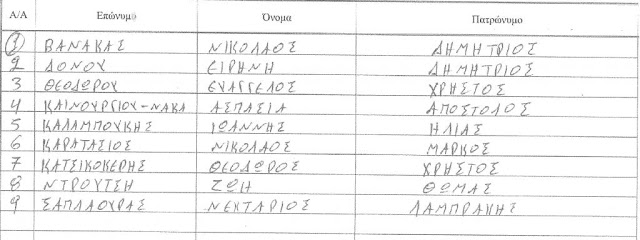 Α/Α Επώνυμο Όνομα Πατρώνυμο
1 ΒΑΝΑΚΑΣ ΝΙΚΟΛΑΟΣ ΔΗΜΗΤΡΙΟΣ
2 ΔΟΝΟΥ ΕΙΡΗΝΗ ΔΗΜΗΤΡΙΟΣ
3 ΘΕΟΔΩΡΟΥ ΕΥΑΓΓΕΛΟΣ ΧΡΗΣΤΟΣ
4 ΚΑΙΝΟΥΡΓΙΟΥ-ΝΑΚΑ ΑΣΠΑΣΙΑ ΑΠΟΣΤΟΛΟΣ
5 ΚΑΛΑΜΠΟΥΚΗΣ ΙΩΑΝΝΗΣ ΗΛΙΑΣ
6 ΚΑΡΑΤΑΣΙΟΣ ΝΙΚΟΛΑΟΣ ΜΑΡΚΟΣ
7 ΚΑΤΣΙΚΟΚΕΡΗΣ ΘΕΟΔΩΡΟΣ ΧΡΗΣΤΟΣ
8 ΝΤΡΟΥΤΣΗ ΖΩΗ ΘΩΜΑΣ
9 ΣΑΠΛΑΟΥΡΑΣ ΝΕΚΤΑΡΙΟΣ ΛΑΜΠΡΑΚΗΣ